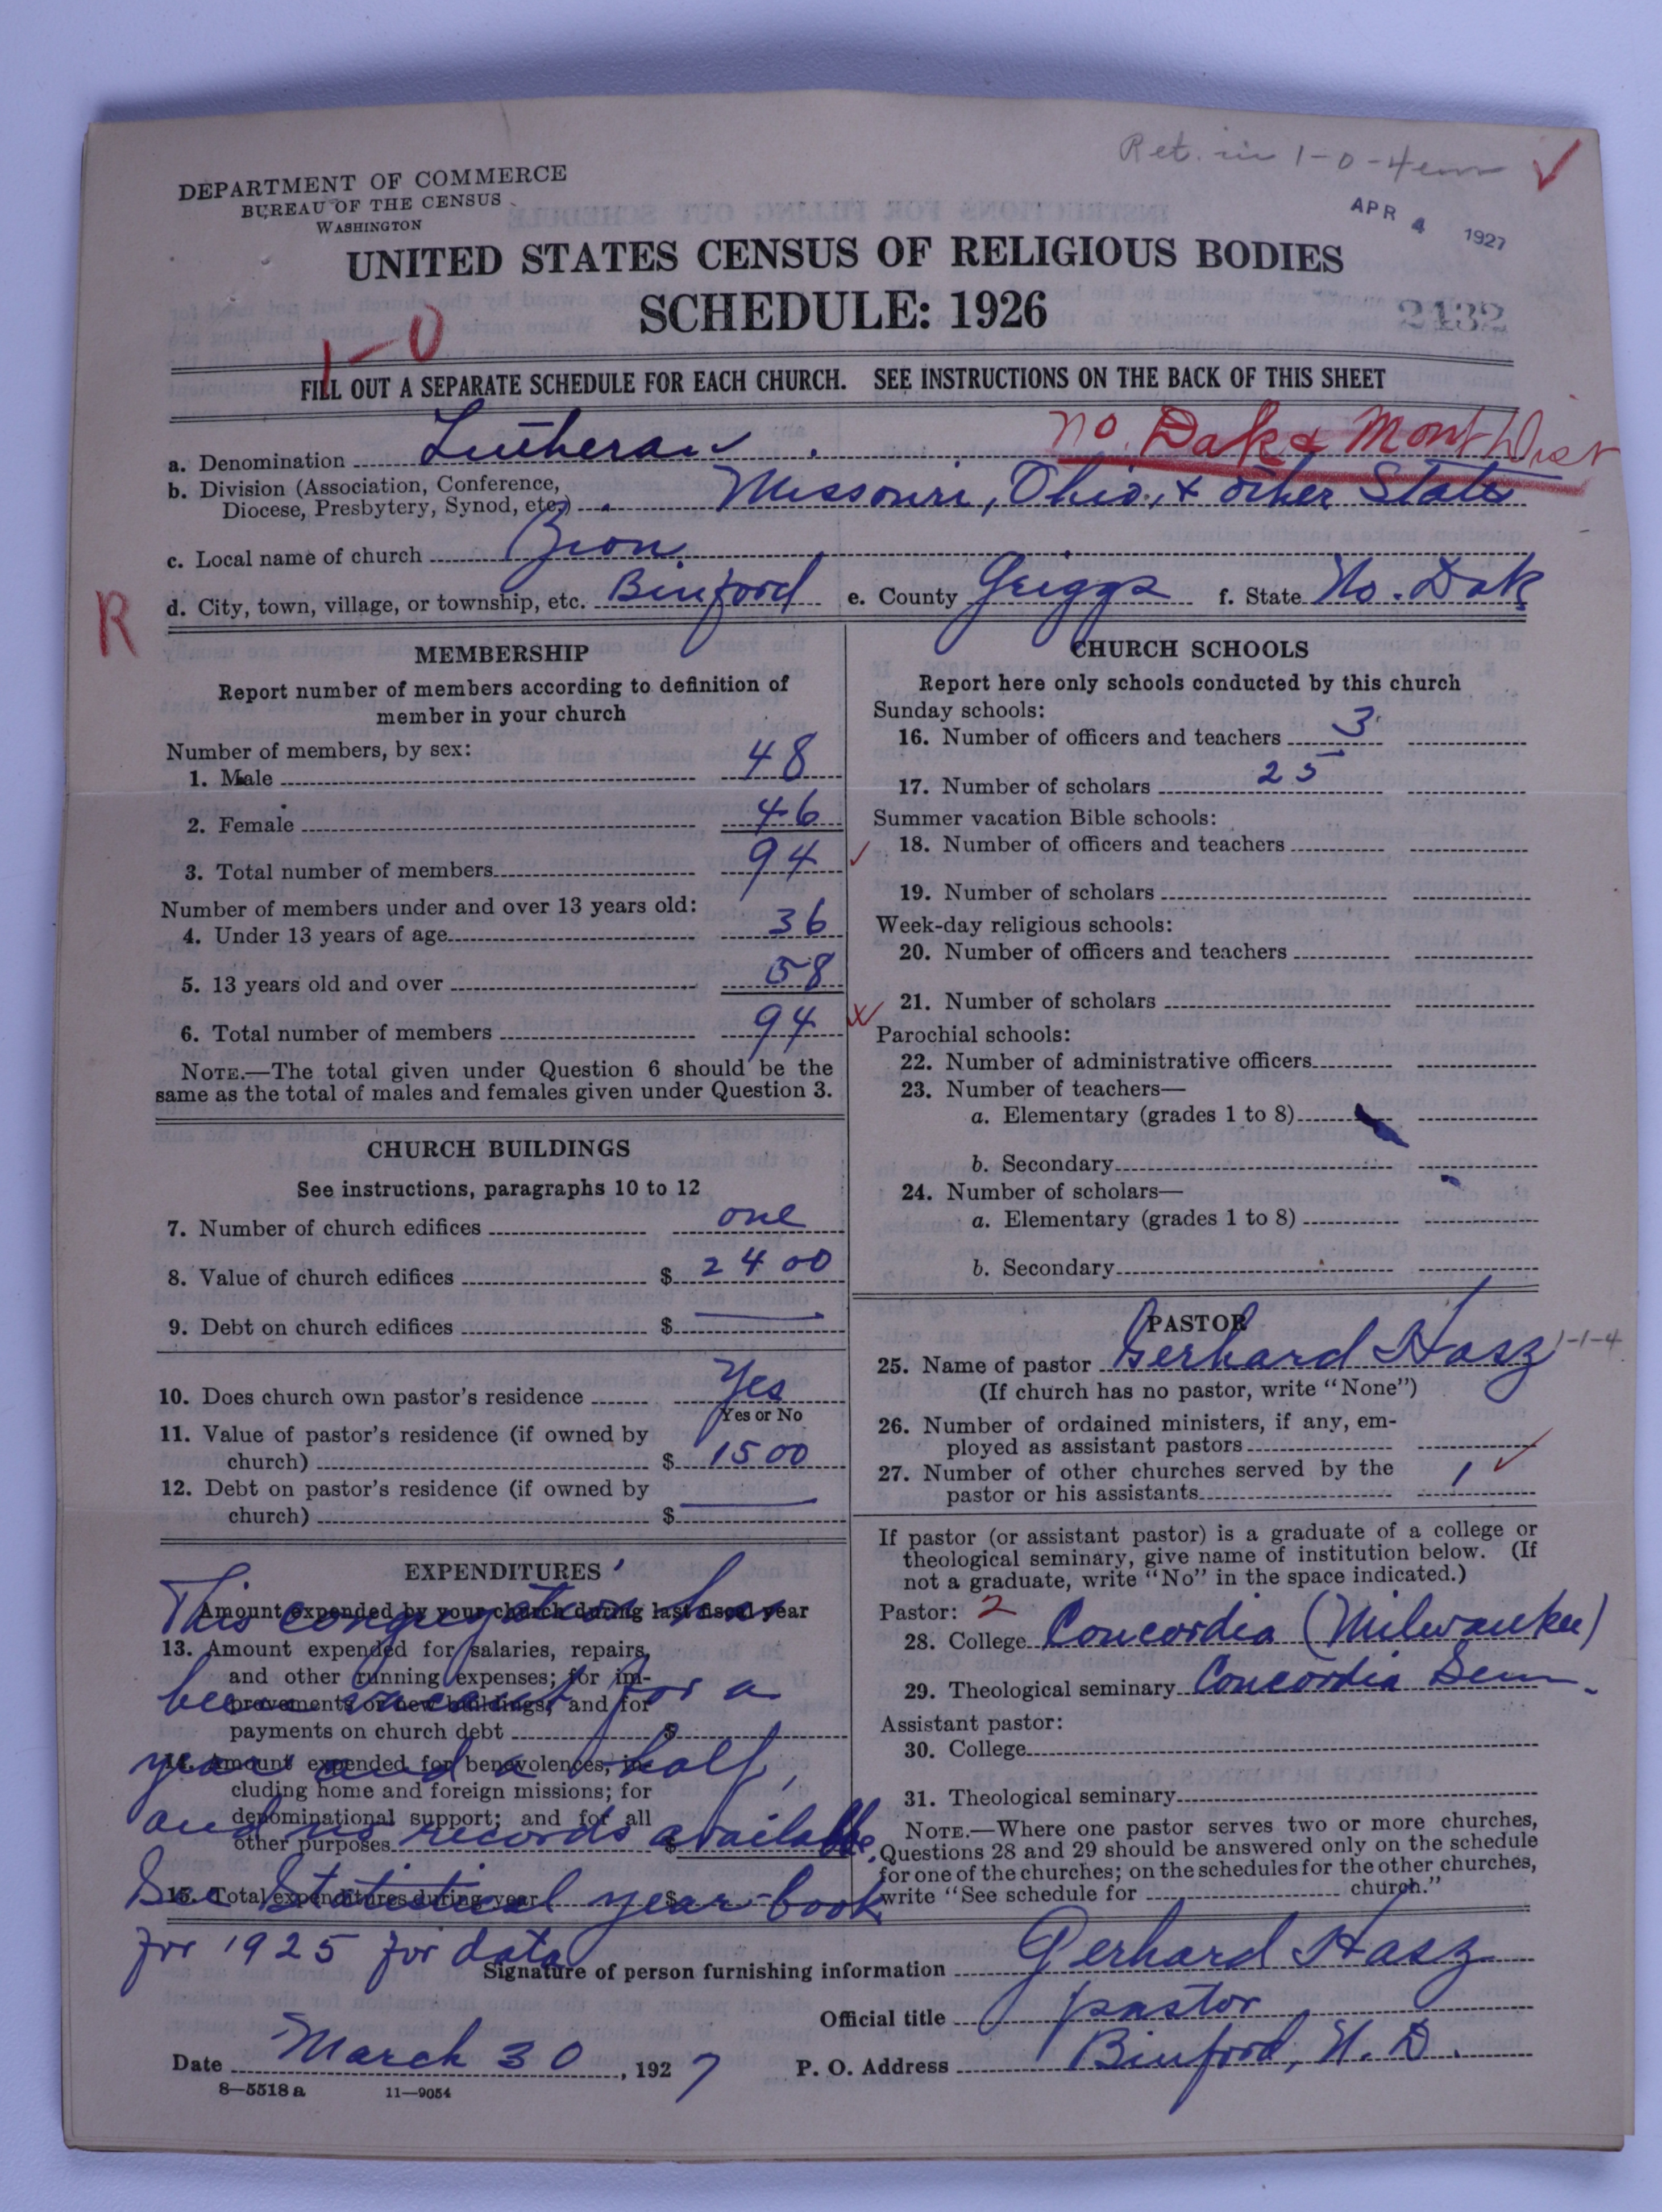 Ret. in 1-0-4
DEPARTMENT OF COMMERCE
BUREAU OF THE CENSUS
WASHINGTON
APR 4 1927
UNITED STATES CENSUS OF RELIGIOUS BODIES
SCHEDULE: 1926
2432
1-0
FILL OUT A SEPARATE SCHEDULE FOR EACH CHURCH. SEE INSTRUCTIONS ON THE BACK OF THIS SHEET
no. Dak & Mont Dist
a. Denomination Lutheran
b. Division (Association, Conference,
Diocese, Presbytery, Synod, etc.) Missouri, Ohio, & other States
c. Local name of church Zion
d. City, town, village, or township, etc. Binford e. County Griggs f. State No. Dak
R
MEMBERSHIP
Report number of members according to definition of
member in your church
Number of members, by sex:
1. Male 48
2. Female 46
3. Total number of members 94
Number of members under and over 13 years old:
4. Under 13 years of age 36
5. 13 years old and over 58
6. Total number of members 94
NOTE.—The total given under Question 6 should be the
same as the total of males and females given under Question 3.
CHURCH BUILDINGS
See instructions, paragraphs 10 to 12
7. Number of church edifices one
8. Value of church edifices $ 2400
9. Debt on church edifices $ —
10. Does church own pastor's residence Yes
Yes or No
11. Value of pastor's residence (if owned by
church) $ 1500
12. Debt on pastor's residence (if owned by
church) $ —
EXPENDITURES
Amount expended by your church during last fiscal year
13. Amount expended for salaries, repairs,
and other running expenses; for im-
provements or new buildings; and for
payments on church debt $
14. Amount expended for benevolences, in-
cluding home and foreign missions; for
denominational support; and for all
other purposes $
15. Total expenditures during year $
This congregation has
been vacant for a
year and a half,
and no records available.
See Statistical year-book
for 1925 for data
CHURCH SCHOOLS
Report here only schools conducted by this church
Sunday schools:
16. Number of officers and teachers 3
17. Number of scholars 25
Summer vacation Bible schools:
18. Number of officers and teachers
19. Number of scholars
Week-day religious schools:
20. Number of officers and teachers
21. Number of scholars
Parochial schools:
22. Number of administrative officers
23. Number of teachers—
a. Elementary (grades 1 to 8)
b. Secondary
24. Number of scholars—
a. Elementary (grades 1 to 8)
b. Secondary
PASTOR
25. Name of pastor Gerhard Hasz 1-1-4
(If church has no pastor, write "None")
26. Number of ordained ministers, if any, em-
ployed as assistant pastors
27. Number of other churches served by the
pastor or his assistants 1
If pastor (or assistant pastor) is a graduate of a college or
theological seminary, give name of institution below. (If
not a graduate, write "No" in the space indicated.)
Pastor: 2
28. College Concordia (Milwaukee)
29. Theological seminary Concordia Sem.
Assistant pastor:
30. College
31. Theological seminary
NOTE.—Where one pastor serves two or more churches,
Questions 28 and 29 should be answered only on the schedule
for one of the churches; on the schedules for the other churches,
write "See schedule for church."
Signature of person furnishing information Gerhard Hasz
Official title pastor
Date March 30, 1927 P. O. Address Binford, N. D.
8—5518 a 11—9054